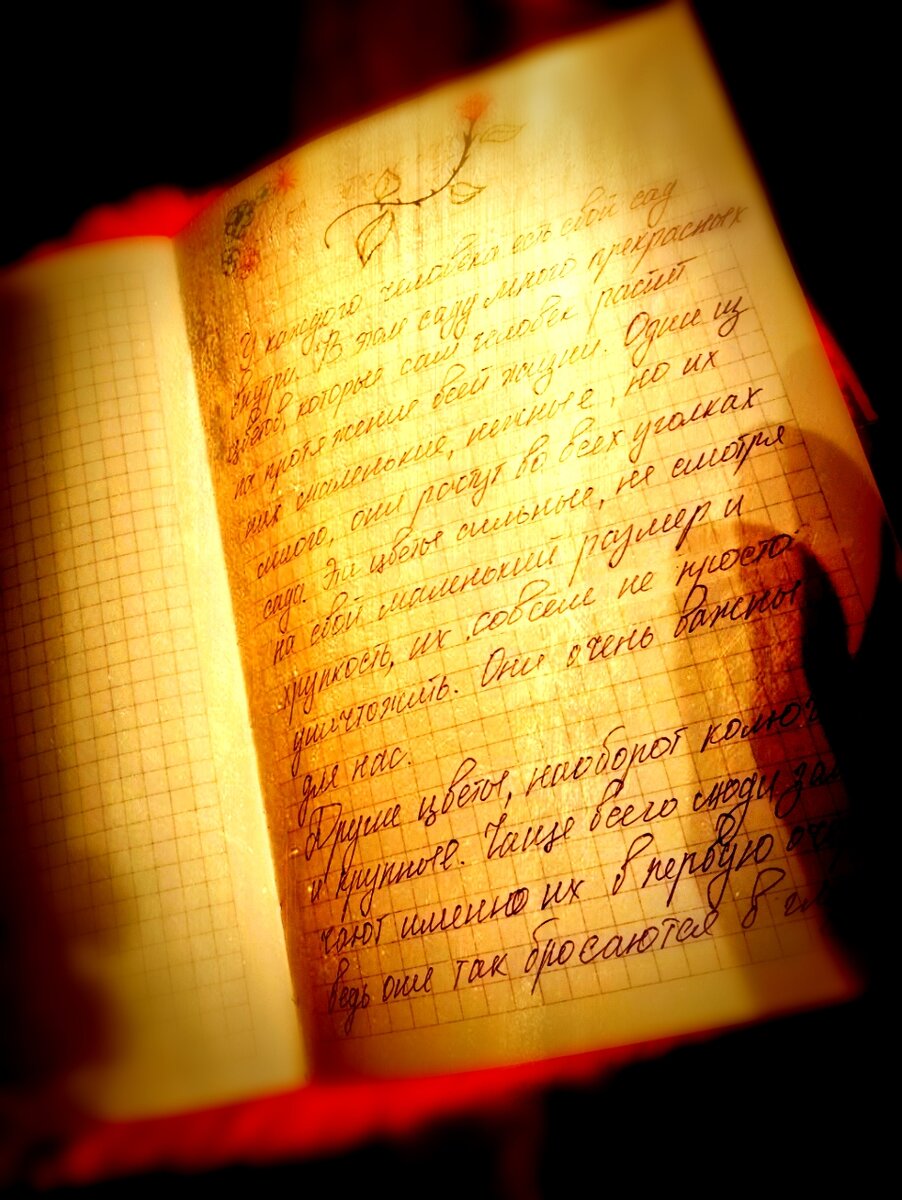 У каждого человека есть свой сад
внутри. В этом саду много прекрасных
цветов, которые сам человек растит
на протяжение всей жизни. Одни из
них маленькие, нежные, но их
много, они растут во всех уголках
сада. Эти цветы сильные, не смотря
на свой маленький размер и
хрупкость, их совсем не просто
уничтожить. Они очень важны
для нас.
Другие цветы, наоборот
и крупные. Чаще всего люди зам
чают именно их в первую
ведь они так бросаются в